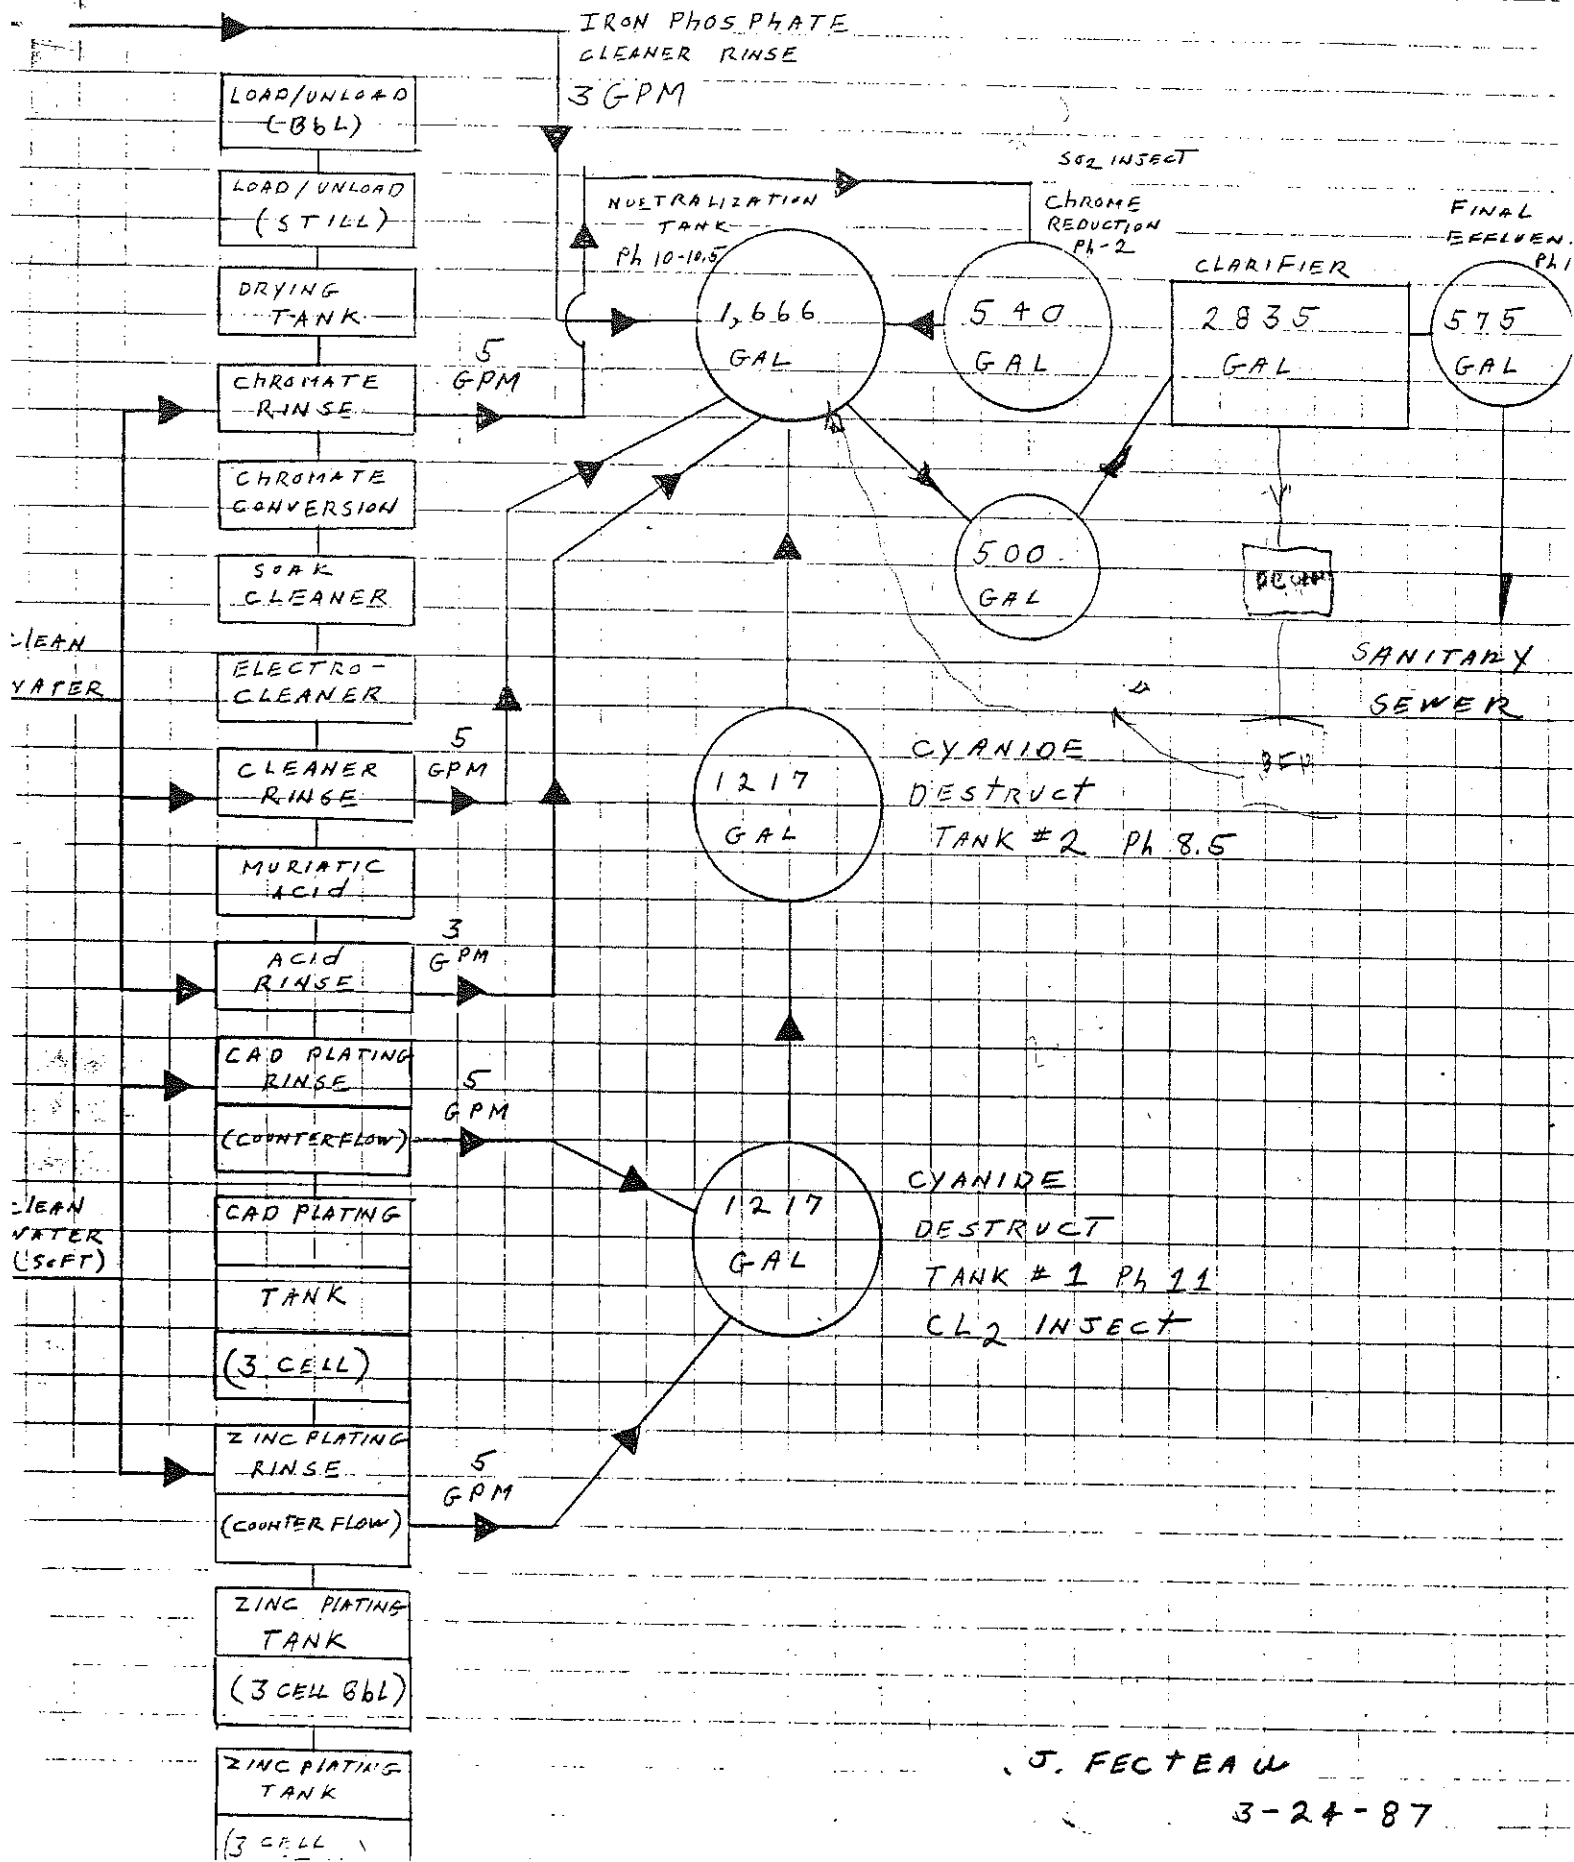 IRON PHOSPHATE
CLEANER RINSE
3 GPM
LOAD/UNLOAD
(BbL)
LOAD/UNLOAD
(STILL)
DRYING
TANK
CHROMATE
RINSE
5
GPM
CHROMATE
CONVERSION
SOAK
CLEANER
ELECTRO-
CLEANER
CLEANER
RINSE
5
GPM
MURIATIC
ACId
ACId
RINSE
3
GPM
CAD PLATING
RINSE
(COUNTERFLOW)
5
GPM
CAD PLATING
TANK
(3 CELL)
ZINC PLATING
RINSE
(COUNTER FLOW)
5
GPM
ZINC PLATING
TANK
(3 CELL BbL)
ZINC PLATING
TANK
(3 CELL
WATER
(SOFT)
NUETRALIZATION
TANK
Ph 10-10.5
1,666
GAL
SO2 INJECT
CHROME
REDUCTION
Ph-2
540
GAL
CLARIFIER
2835
GAL
FINAL
575
GAL
500
GAL
SANITARY
SEWER
1217
GAL
CYANIDE
DESTRUCT
TANK #2 Ph 8.5
1217
GAL
CYANIDE
DESTRUCT
TANK #1 Ph 11
CL2 INJECT
J. FECTEAU
3-24-87